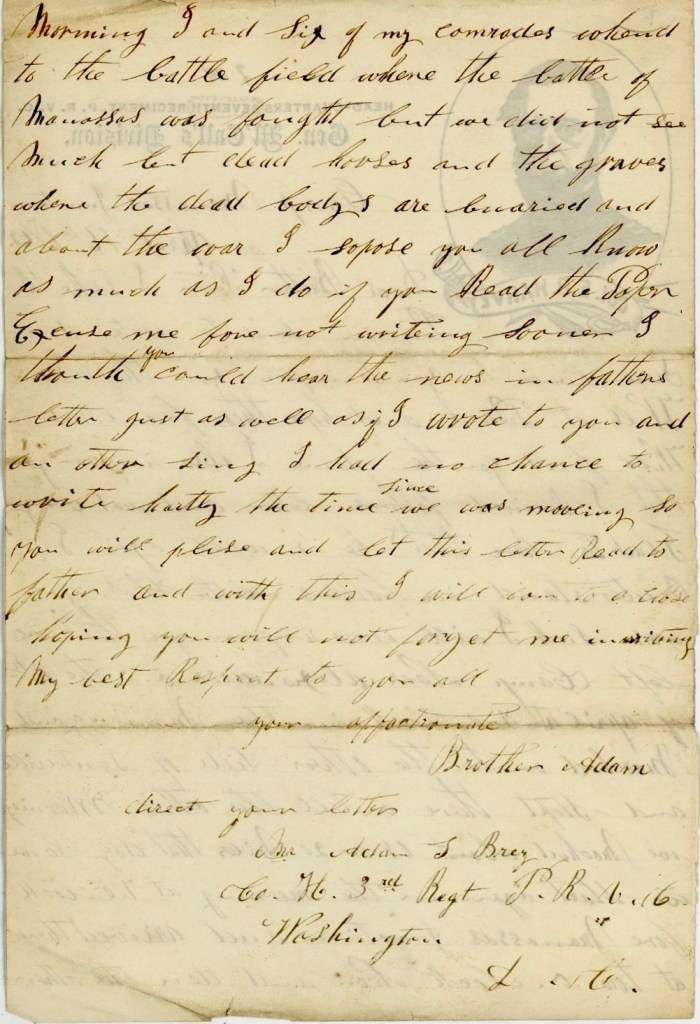 Morning I and Six of my comrades whend
to the battle field where the battle of
Manassas was fought but we did not see
Much but dead horses and the graves
where the dead bodys are buaried and
about the war I sopose you all Know
as much as I do if you Read the Paper
Excuse me fore not writing sooner I
thouth you could hear the news in fathers
letter gust as well as if I wrote to you and
an other sing I had no chance to
write hartly the time since we was moveing so
you will plise and let this letter Read to
father and with this I will com to a close
hoping you will not forget me in writing
My best Respect to you all
your affactionate
Brother Adam
direct your letter
Adam S Brey
Co. H. 3rd Regt P. R. V. C
Washington
D. C.
HEAD QUARTERS SEVENTH REGIMENT P. R. V.
Gen. M'Call's Division.